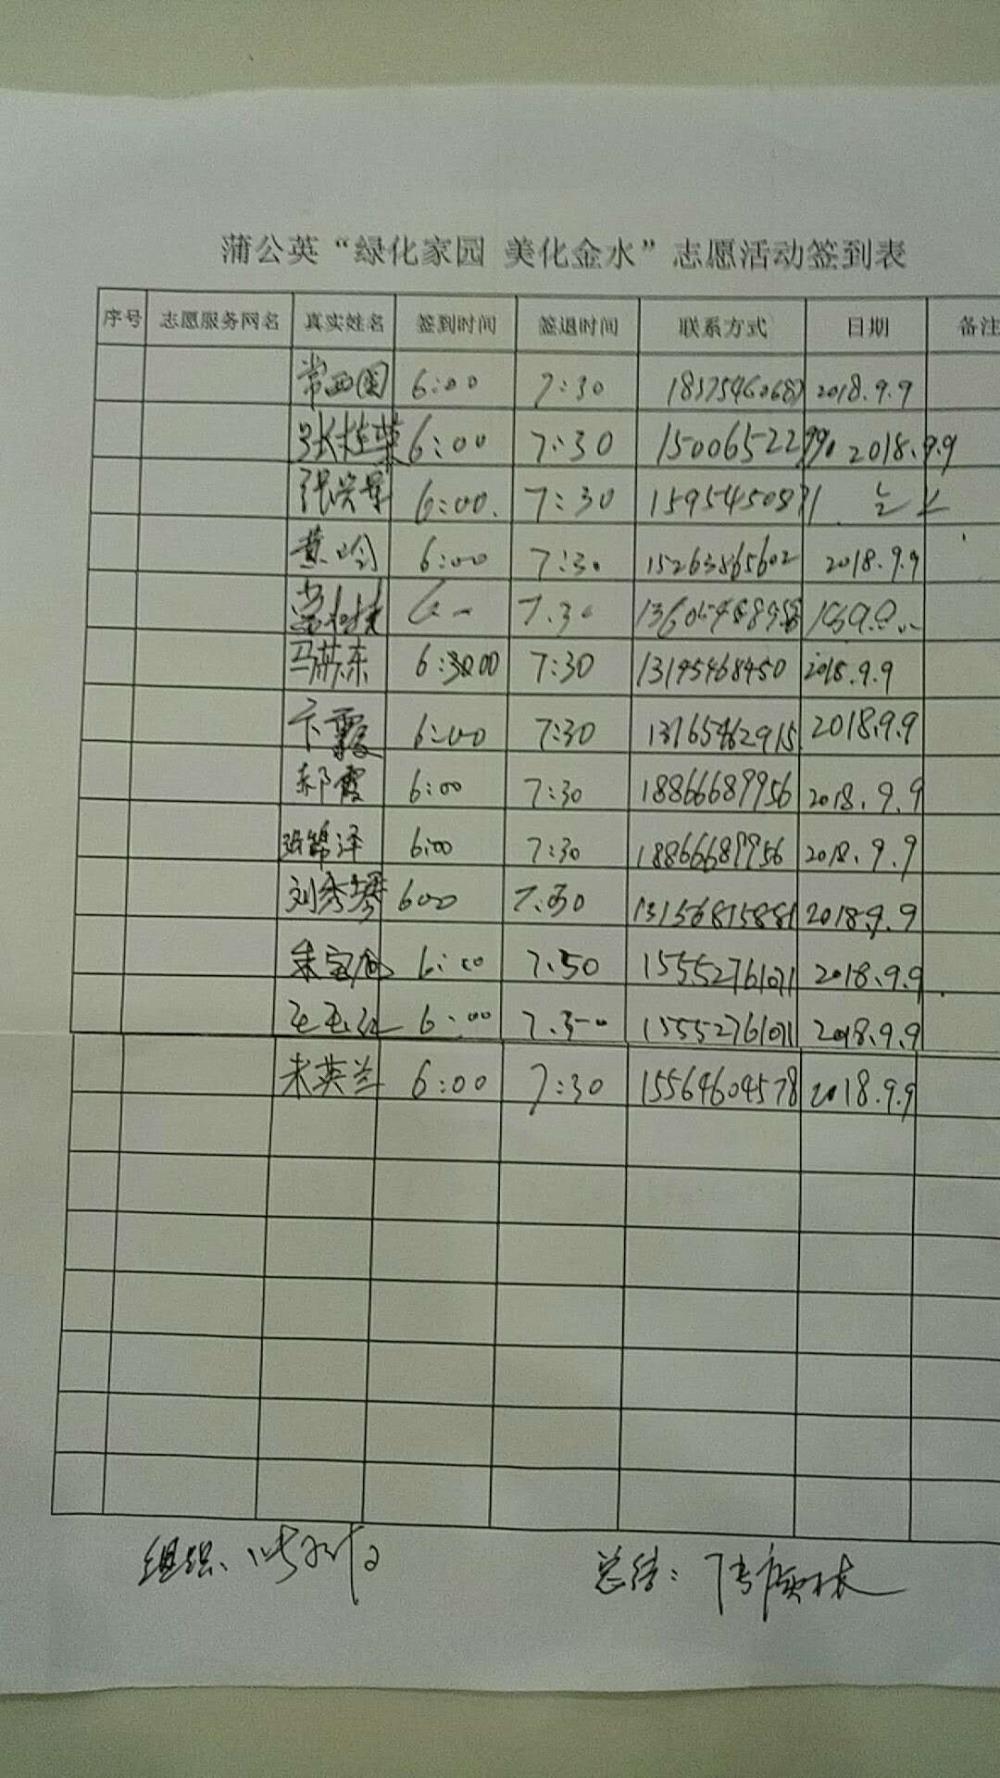 蒲公英“绿化家园 美化金水”志愿活动签到表
序号 志愿服务网名 真实姓名 签到时间 签退时间 联系方式 日期 备注
常西国 6:00 7:30 2018.9.9
张桂荣 6:00 7:30 2018.9.9
6:00. 7:30
黄 6:00 7:30 15263865602 2018.9.9
7.30
马英东 7:30 13195468450 2018.9.9
卞霞 6:00 7:30 13165462915 2018.9.9
郝霞 6:00 7:30 18866689956 2018.9.9
张锦泽 6:00 7:30 18866689956 2018.9.9
刘秀琴 600 7.30 13156815881 2018.9.9
6:00 7.50 15552761071 2018.9.9
王玉红 6:00 15552761071 2018.9.9
朱英兰 6:00 7:30 15564604578 2018.9.9
组织、
总结: